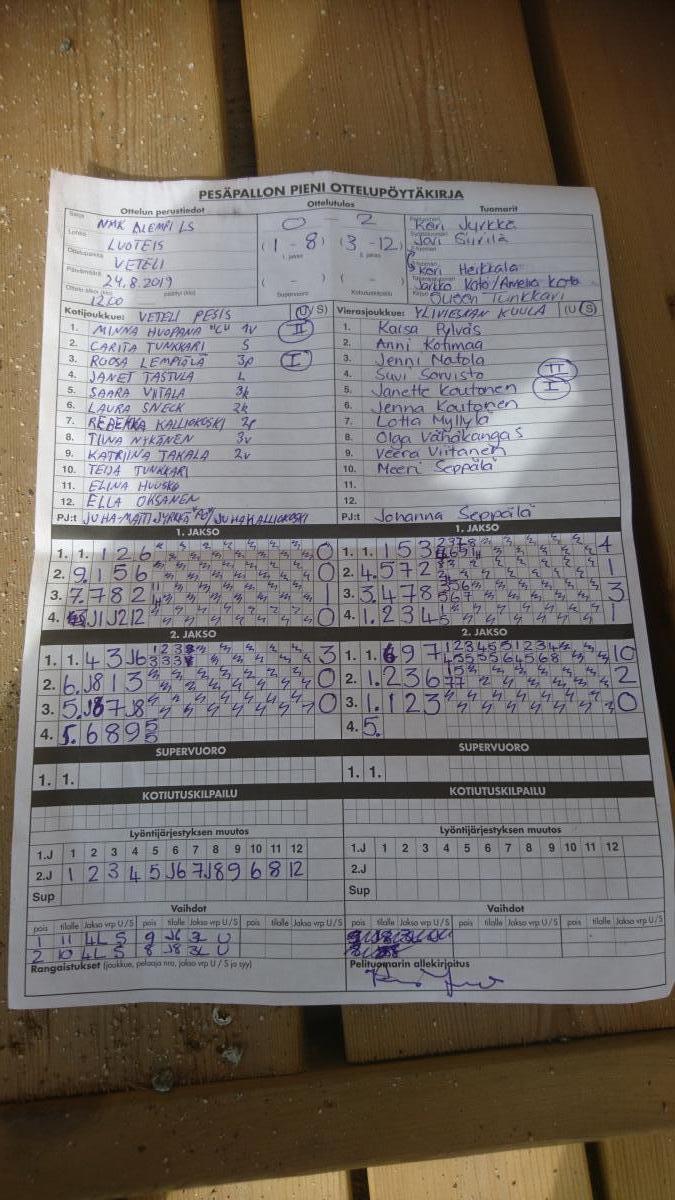 PESÄPALLON PIENI OTTELUPÖYTÄKIRJA
Ottelun perustiedot Ottelutulos Tuomarit
Sarja NMK ALEMPI LS 0 - 2 Kari Jyrkkä
Lohko LUOTEIS (1 - 8) (3 - 12) Jari Siirilä
1. jakso 2. jakso
Ottelupaikka VETELI Kari Heikkala
Päivämäärä 24.8.2019 ( - ) ( - ) Jarkko Koto/Amelia Koto
Ottelu alkoi (klo) 12.00 päättyi (klo) Supervuoro Kotiutuskilpailu Queen Tunkkari
Kotijoukkue: VETELI PESIS (U/S)
1. MINNA HUOPANA "C" 1v II
2. CARITA TUNKKARI S
3. ROOSA LEMPIÄLÄ 3p I
4. JANET TASTULA L
5. SAARA VIITALA 3k
6. LAURA SNECK 2k
7. REBEKKA KALLIOKOSKI 2p
8. TIINA NYKÄNEN 3v
9. KATRIINA TAKALA 2v
10. TEIJA TUNKKARI
11. ELINA HUUSKO
12. ELLA OKSANEN
PJ:t JUHA-MATTI JYRKKÄ "PJ"/JUHA KALLIOKOSKI
Vierasjoukkue: YLIVIESKAN KUULA (U/S)
1. Kaisa Pylväs
2. Anni Kotimaa
3. Jenni Natola
4. Suvi Sorvisto II
5. Janette Kautonen I
6. Jenna Kautonen
7. Lotta Myllylä
8. Olga Vähäkangas
9. Veera Viitanen
10. Meeri Seppälä
11.
12.
PJ:t Johanna Seppälä
1. JAKSO
1. 1. 1 2 6 0
2. 9. 1 5 6 0
3. 7. 7 8 2 1
4. J1 J2 12 0
1. JAKSO
1. 1. 1 5 3 4
2. 4. 5 7 2 1
3. 3. 4 7 8 3
4. 1. 2 3 4 1
2. JAKSO
1. 1. 4 3 J6 3
2. 6. J8 1 3 0
3. 5. J8 7 J8 0
4. 5. 6 8 9 5
2. JAKSO
1. 1. 6 9 7 10
2. 1. 2 3 6 2
3. 1. 1 2 3 0
4. 5.
SUPERVUORO SUPERVUORO
1. 1. 1. 1.
KOTIUTUSKILPAILU KOTIUTUSKILPAILU
Lyöntijärjestyksen muutos
1.J 1 2 3 4 5 6 7 8 9 10 11 12
2.J 1 2 3 4 5 J6 7 J8 9 6 8 12
Sup
Lyöntijärjestyksen muutos
1.J 1 2 3 4 5 6 7 8 9 10 11 12
2.J
Sup
Vaihdot
pois tilalle Jakso vrp U / S pois tilalle Jakso vrp U / S pois tilalle Jakso vrp U / S
1 11 4L S 9 J6 3L U
2 10 4L S 8 J8 3L U
Rangaistukset (joukkue, pelaaja nro, jakso vrp U / S ja syy)
Vaihdot
pois tilalle Jakso vrp U / S pois tilalle Jakso vrp U / S pois tilalle Jakso vrp U / S
Pelituomarin allekirjoitus